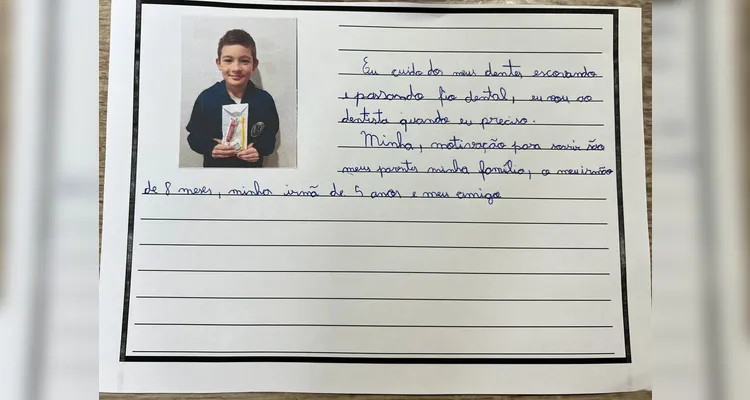 Eu cuido dos meus dentes escovando
e passando fio dental, eu vou ao
dentista quando eu preciso.
Minha, motivação para sorrir são
meus parentes minha família, o meu irmão
de 8 meses, minha irmã de 5 anos e meu amigo